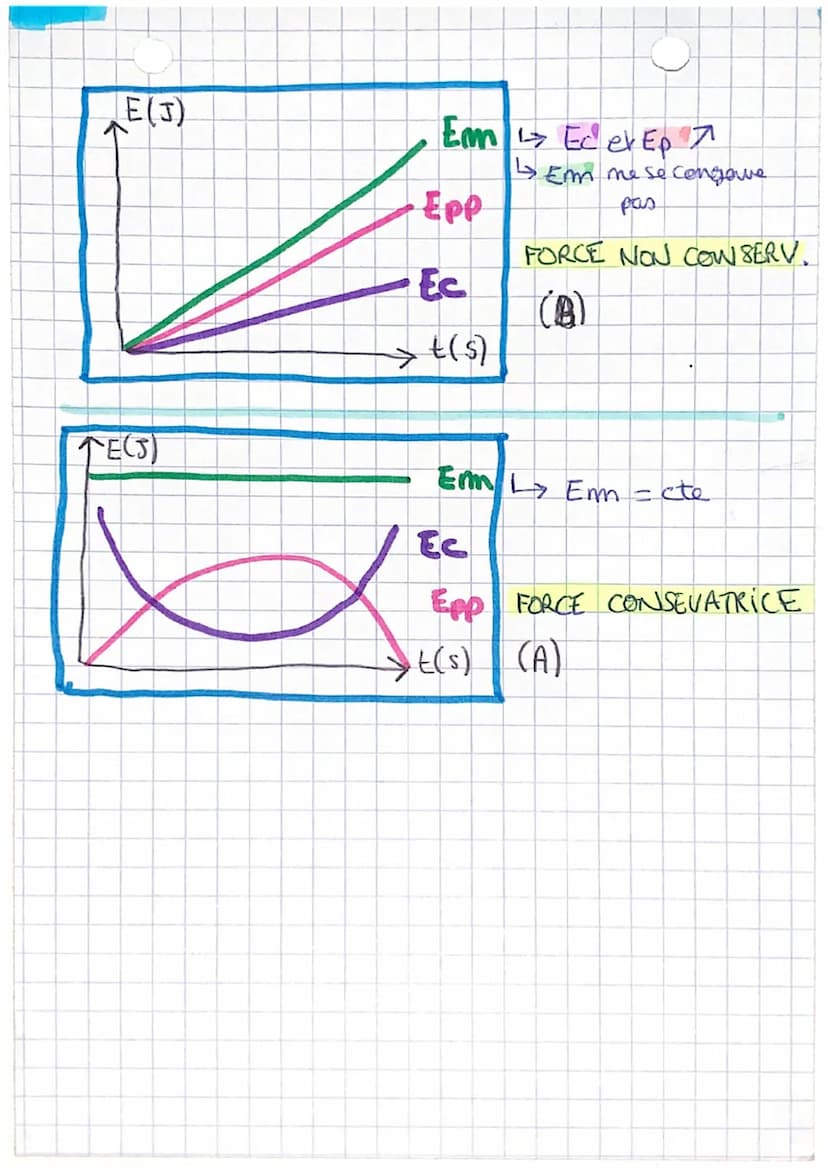 E(J)
Em ↳ Ec et Ep ↗
↳ Em ne se conserve
pas
Epp
FORCE NON CONSERV.
Ec
(B)
t(s)
E(J)
Em ↳ Em = cte
Ec
Epp FORCE CONSEVATRICE
t(s) (A)